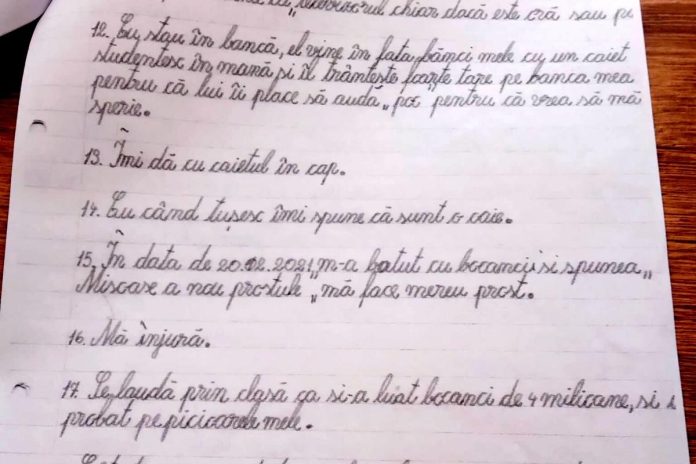 „ chiar dacă este oră sau pe
12. Eu stau în bancă, el vine în fața bănci mele cu un caiet
studentesc în mană și îl trântește foarte tare pe banca mea
pentru că lui îi place să audă „poc" pentru că vrea să mă
sperie.
13. Îmi dă cu caietul în cap.
14. Eu când tușesc îmi spune că sunt o oaie.
15. În data de 20.02.2021, m-a batut cu bocancii si spunea „
Miroase a nou prostule „mă face mereu prost.
16. Mă înjură.
17. Se laudă prin clasă ca si-a luat bocanci de 4 milioane, si i
probat pe picioarele mele.